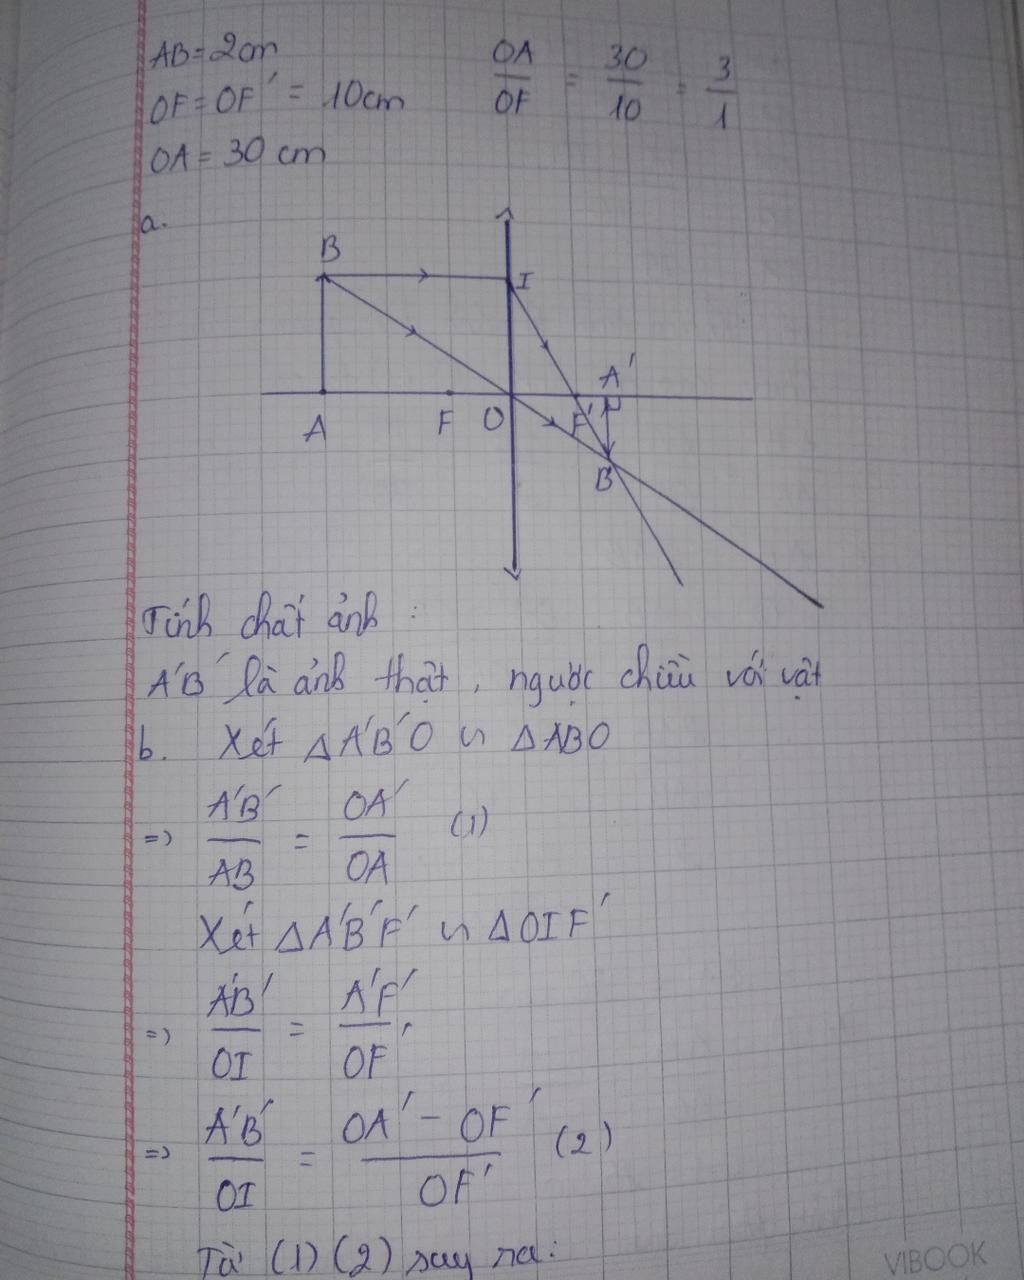 AB = 2cm
OF = OF' = 10cm
OA = 30 cm
OA/OF = 30/10 = 3/1
a.
B
I
A'
A
F
O
F'
B'
Tính chất ảnh :
A'B' là ảnh thật, ngược chiều với vật
b. Xét ΔA'B'O ∽ ΔABO
=> A'B'/AB = OA'/OA (1)
Xét ΔA'B'F' ∽ ΔOIF'
=> A'B'/OI = A'F'/OF'
=> A'B'/OI = OA' - OF'/OF' (2)
Từ (1) (2) suy ra:
VIBOOK